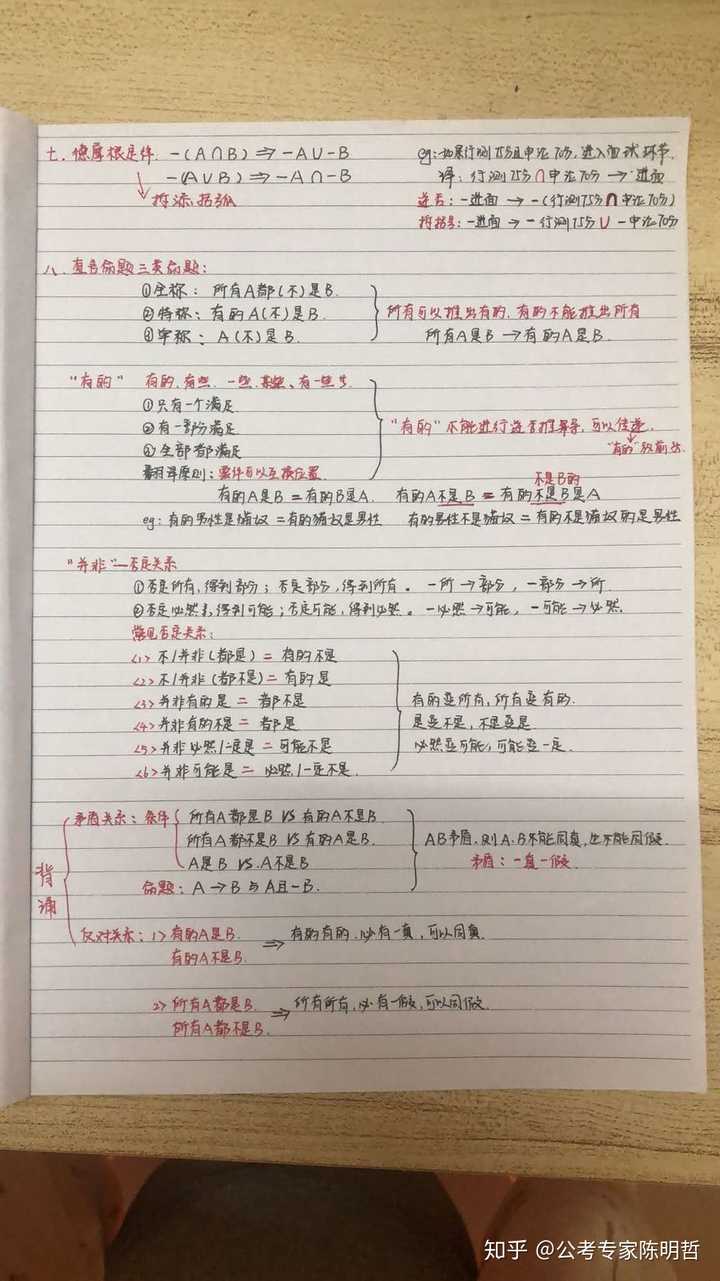 七. 德摩根定律. -(A∩B) ⇒ -A∪-B
-(A∪B) ⇒ -A∩-B
拆添括弧
eg: 如果行测75分且申论70分, 进入面试环节.
译: 行测75分∩申论70分 → 进面
逆否: -进面 → -(行测75分∩申论70分)
拆括号: -进面 → -行测75分∪-申论70分
八. 直言命题三类命题:
①全称: 所有A都(不)是B.
②特称: 有的A(不)是B.
③单称: A(不)是B.
所有可以推出有的, 有的不能推出所有
所有A是B → 有的A是B.
"有的" 有的、有些、一些、某些、有一些等
①只有一个满足
②有一部分满足
③全部都满足
翻译原则: 条件可以互换位置.
"有的"不能进行逆否推导, 可以传递.
"有的"放前公
不是B的
有的A是B = 有的B是A. 有的A不是B = 有的不是B是A
eg: 有的男性是猫奴 = 有的猫奴是男性 有的男性不是猫奴 = 有的不是猫奴的是男性
"并非"—否定关系
①否定所有, 得到部分; 否定部分, 得到所有。 -所 → 部分, -部分 → 所.
②否定必然, 得到可能; 否定可能, 得到必然。 -必然 → 可能, -可能 → 必然.
常见否定关系:
<1> 不/并非(都是) = 有的不是
<2> 不/并非(都不是) = 有的是
<3> 并非有的是 = 都不是
<4> 并非有的不是 = 都是
<5> 并非必然/一定是 = 可能不是
<6> 并非可能是 = 必然/一定不是.
有的变所有, 所有变有的.
是变不是, 不是变是
必然变可能, 可能变一定.
背诵
矛盾关系: 条件 所有A都是B VS 有的A不是B.
所有A都不是B VS 有的A是B.
A是B VS A不是B
命题: A → B 与 A且-B.
AB矛盾, 则A、B不能同真, 也不能同假.
矛盾: 一真一假
反对关系: 1> 有的A是B. ⇒ 有的有的, 必有一真, 可以同真.
有的A不是B.
2> 所有A都是B. ⇒ 所有所有, 必有一假, 可以同假.
所有A都不是B.
知乎 @公考专家陈明哲